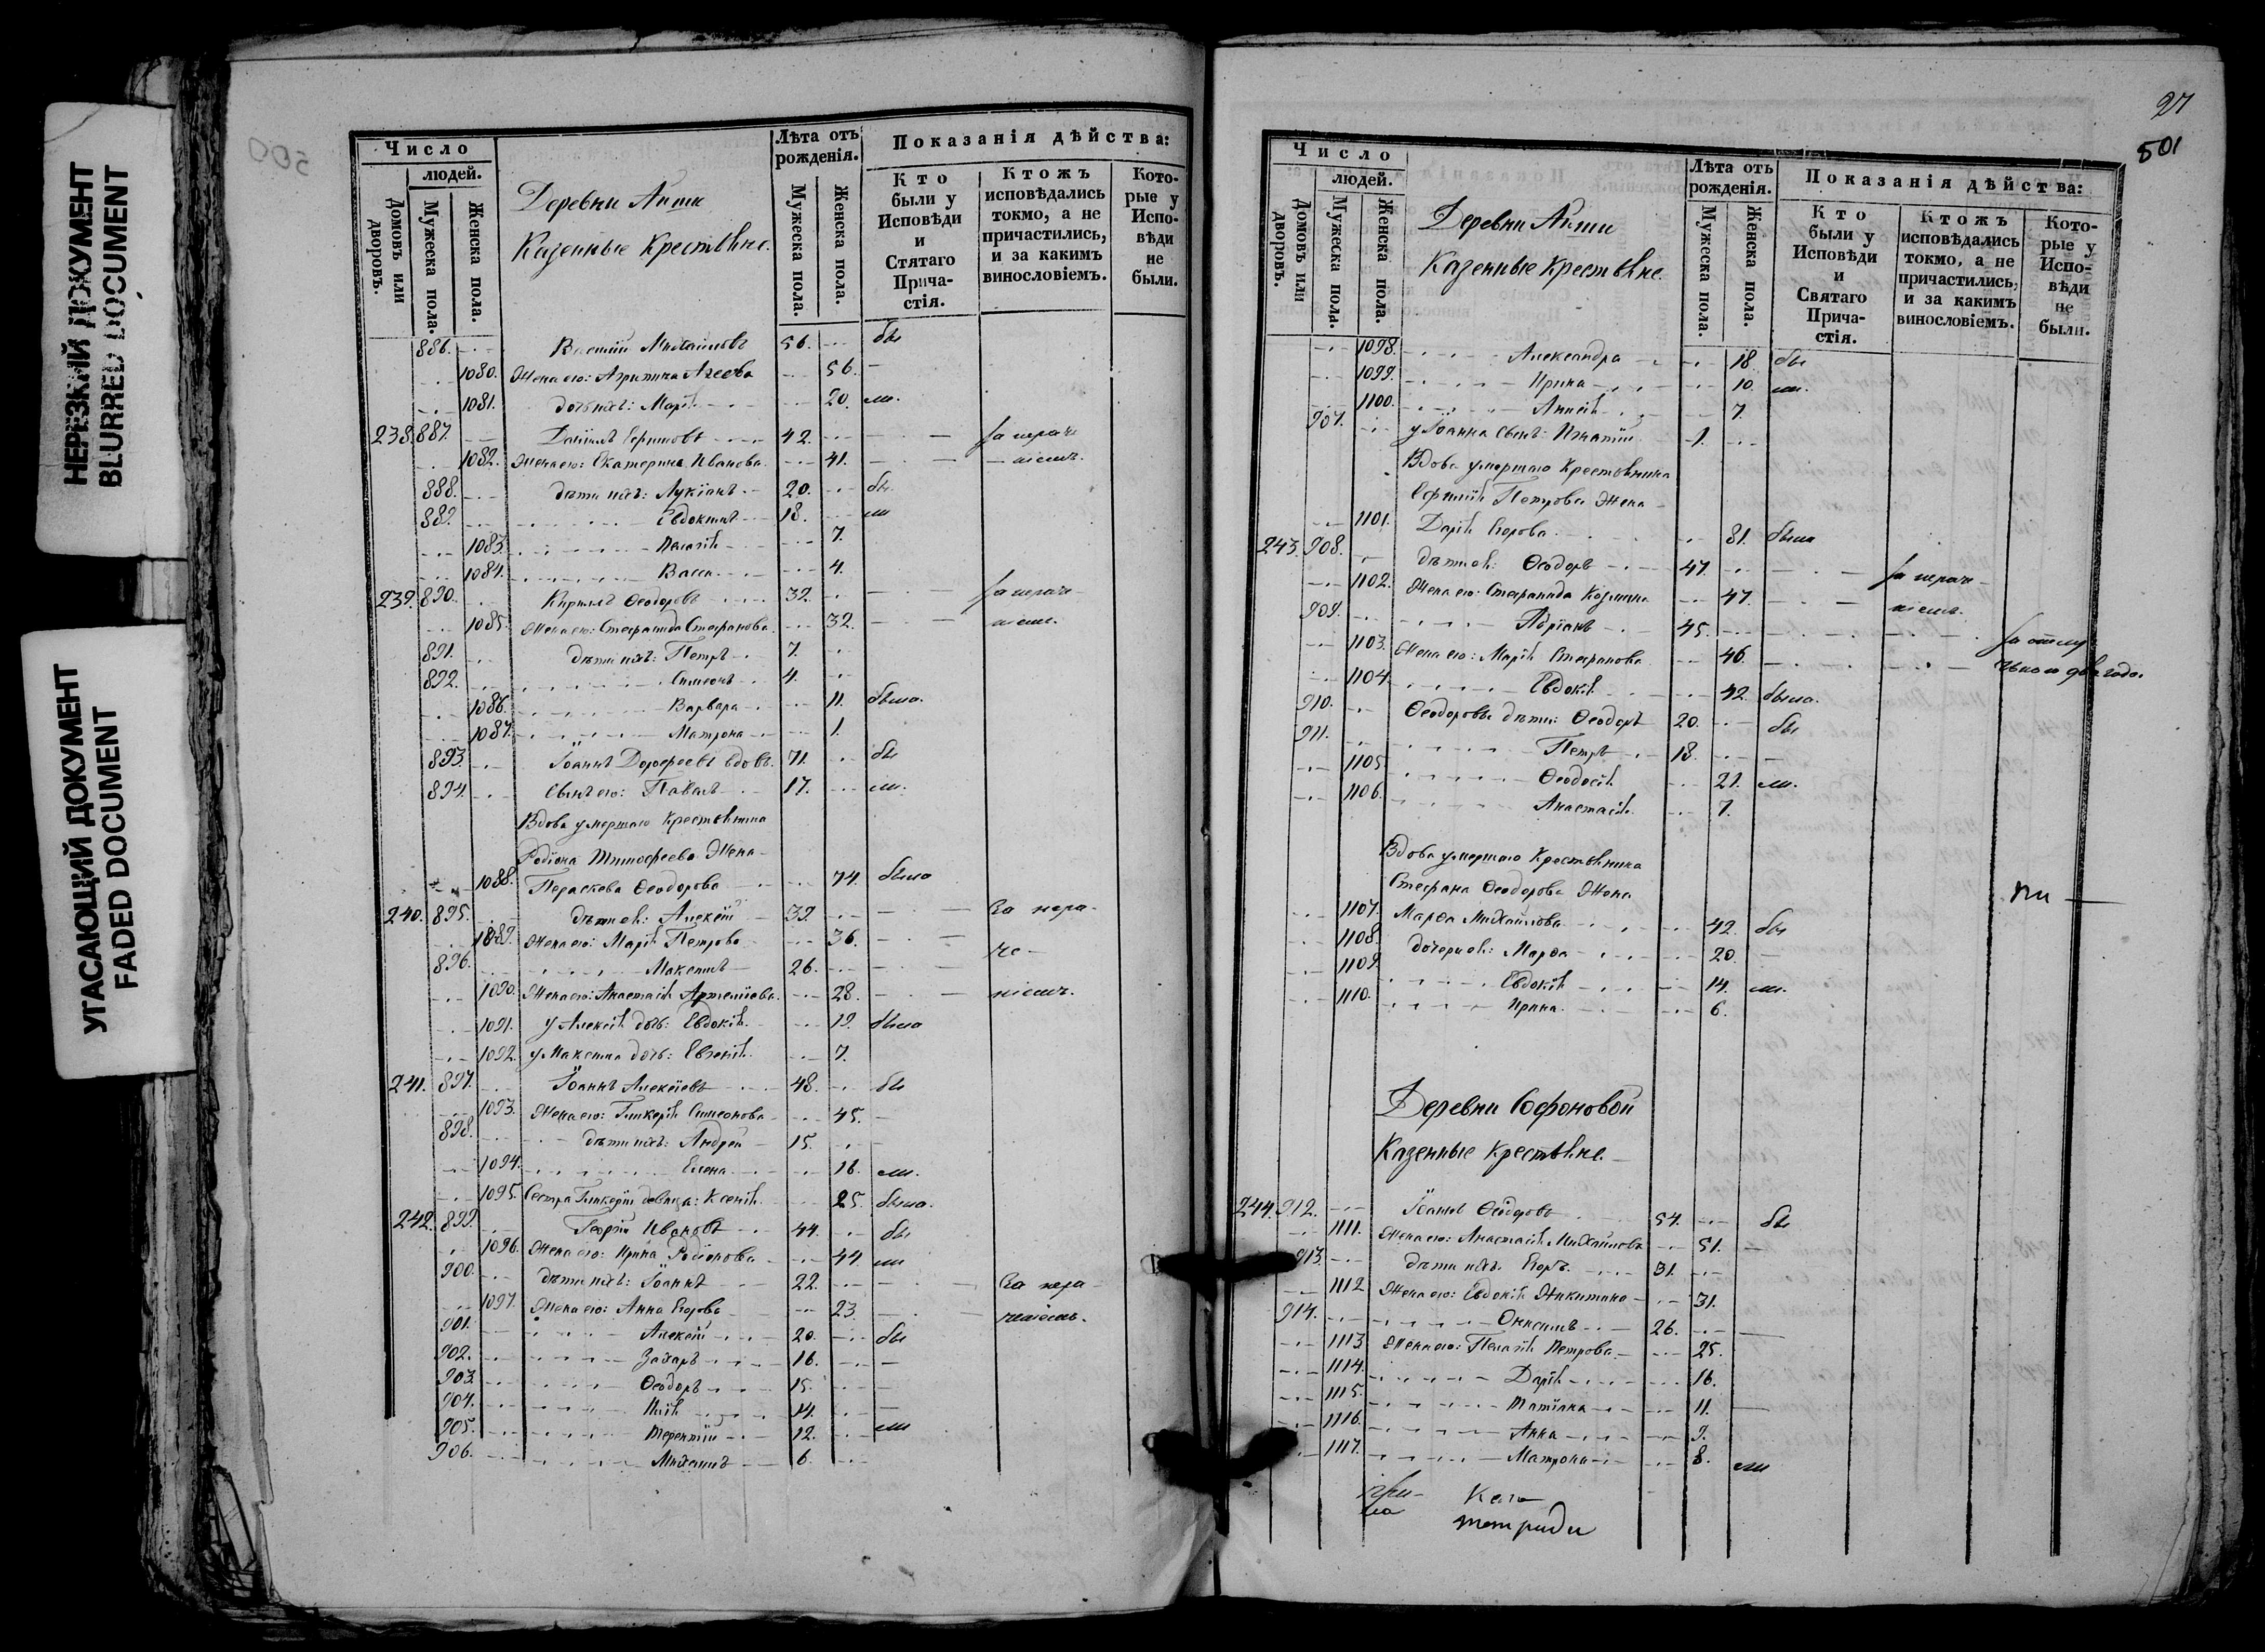 НЕРЕЗКИЙ ДОКУМЕНТ
BLURRED DOCUMENT
УГАСАЮЩИЙ ДОКУМЕНТ
FADED DOCUMENT
500
Число
людей.
Домовъ или дворовъ.
Мужеска пола.
Женска пола.
Деревни
Казенные Крестьяне.
Лѣта отъ рожденія.
Мужеска пола.
Женска пола.
Показанія дѣйства:
Кто были у Исповѣди и Стятаго Прича-стія.
Ктожъ исповѣдались токмо, а не причастились, и за какимъ винословіемъ.
Кото-рые у Испо-вѣди не были.
886. Михайловъ 56. бы
1080. Жена его: Агрипина 56. —
1081. дочь ихъ: Марія 20. ли.
238. 887. Даніилъ 42. За нераче
1082. Жена его: Екатерина Иванова 41. — ніемъ.
888. дѣти ихъ: Лукіанъ 20. бы
889. Евдокимъ 18. ли
1083. Пелагія 7.
1084. Васса 4.
239. 890. Кирилъ Ѳеодоровъ 39. За нераче
1085. Жена его: Стефанида Стефанова 32. ніемъ.
891. дѣти ихъ: Петръ 7.
892. Симеонъ 4.
1086. Варвара 11. была.
1087. Матрона 1.
893. Іоаннъ Дорофеевъ вдовъ. 71. бы
894. Сынъ его: Павелъ 17. ли.
Вдова умершаго Крестьянина
Родіона Тимофеева Жена
1088. Параскева Ѳеодорова 74. была
240. 895. дѣти ея: Алексій 39. За нера-
1089. Жена его: Марія Петрова 36. че-
896. Максимъ 26.
1090. Жена его: Анастасія Артеміева 28. ніемъ.
1091. у Алексія дочь: Евдокія 19. была
1092. у Максима дочь: Евгенія 7.
241. 897. Іоаннъ Алексіевъ 48. бы
1093. Жена его: Гликерія Симеонова 45. —
898. дѣти ихъ: Андрей 15. —
1094. Елена 16. ли.
1095. Сестра Гликеріи девица: Ксенія 25. была.
242. 899. Георгій Ивановъ 44. бы
1096. Жена его: Ирина Родіонова 44. ли
900. дѣти ихъ: Іоаннъ 22. За нера-
1097. Жена его: Анна Егорова 23. чніемъ.
901. Алексій 20. бы
902. Захаръ 16. —
903. Ѳеодоръ 15. —
904. Илія 14. —
905. Терентій 12. ли
906. Михаилъ 6.
27
501
Число
людей.
Домовъ или дворовъ.
Мужеска пола.
Женска пола.
Деревни
Казенные Крестьяне.
Лѣта отъ рожденія.
Мужеска пола.
Женска пола.
Показанія дѣйства:
Кто были у Исповѣди и Святаго Прича-стія.
Ктожъ исповѣдались токмо, а не причастились, и за какимъ винословіемъ.
Кото-рые у Испо-вѣди не были.
1098. Александра 18. бы
1099. Ирина 10. ли.
1100. 7.
907. у Іоанна сынъ: Игнатій 1.
Вдова умершаго Крестьянина
Петрова Жена
1101. Дарія Егорова 81. была
243. 908. дѣти ея: Ѳеодоръ 47. За нераче-
1102. Жена его: Стефанида Козмина 47. ніемъ.
909. Адріанъ 45. За отлу-
1103. Жена его: Марія Стефанова 46.
1104. Евдокія 42. была.
910. Ѳеодоровы дѣти: Ѳеодоръ 20. бы
911. Петръ 18. —
1105. Ѳеодосія 21. ли.
1106. Анастасія 7.
Вдова умершаго Крестьянина
Стефана Ѳеодорова Жена
1107. Марѳа Михайлова 42. бы
1108. дочери ея: Марѳа 20. —
1109. Евдокія 14. ли.
1110. Ирина 6.
Деревни Софоновой
Казенные Крестьяне
244. 912. Іоаннъ Ѳеодоровъ 54. бы
1111. Жена его: Анастасія Михайлова 51. —
913. дѣти ихъ: Егоръ 31.
1112. Жена его: Евдокія Никитина 31.
914. Онисимъ 26. —
1113. Жена его: Пелагія Петрова 25.
1114. Дарія 16.
1115. Татіана 11. —
1116. Анна 9.
1117. Матрона 8. ли
тетради